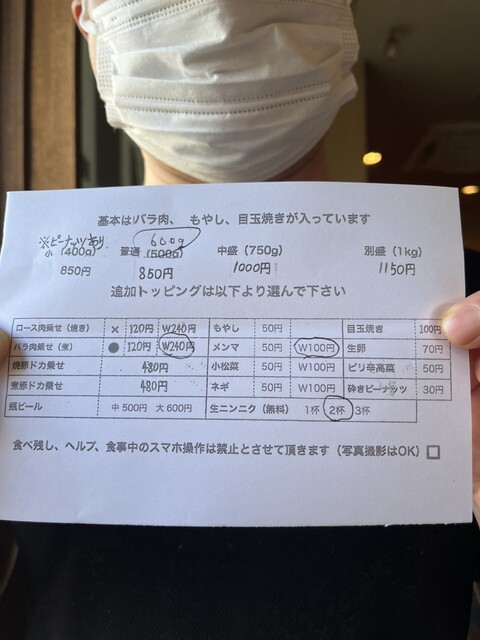 基本はバラ肉、 もやし、目玉焼きが入っています
※ピーナッツあり 600g
小 (400g) 普通 (500g) 中盛 (750g) 別盛 (1kg)
850円 850円 1000円 1150円
追加トッピングは以下より選んで下さい
ロース肉乗せ (焼き) × 120円 W240円 もやし 50円 目玉焼き 100円
バラ肉乗せ (煮) ● 120円 W240円 メンマ 50円 W100円 生卵 70円
焼豚ドカ乗せ 480円 小松菜 50円 W100円 ピリ辛高菜 50円
煮豚ドカ乗せ 480円 ネギ 50円 W100円 砕きピーナッツ 30円
瓶ビール 中 500円 大 600円 生ニンニク (無料) 1杯 2杯 3杯
食べ残し、ヘルプ、食事中のスマホ操作は禁止とさせて頂きます (写真撮影はOK) □